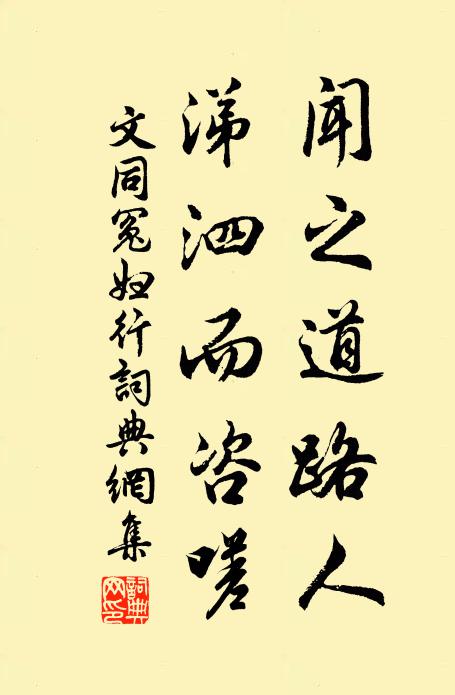 聞之道路人
涕泗而咨嗟
文同冤婦行詞典網集
詞典网印